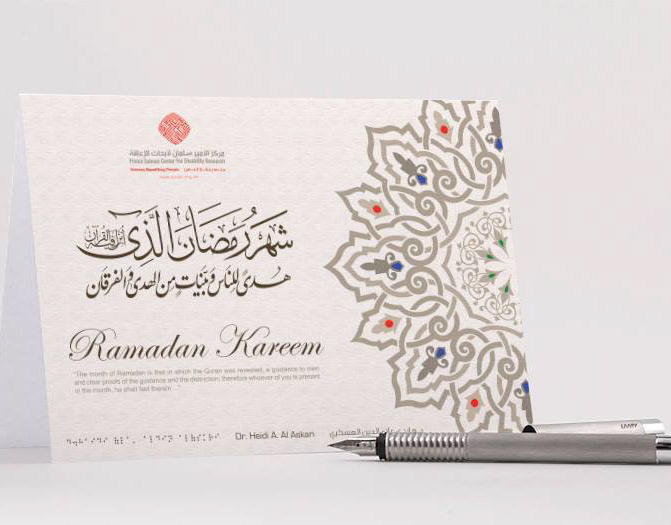 مركز الأمير سلمان لأبحاث الإعاقة
Prince Salman Center for Disability Research
Science Benefiting People
شهر رمضان الذي أنزل فيه القرآن
هدى للناس وبينات من الهدى والفرقان
Ramadan Kareem
"The month of Ramadan is that in which the Quran was revealed, a guidance to men
and clear proofs of the guidance and the distinction; therefore whoever of you is present
in the month, he shall fast therein ..."
Dr. Heidi A. Al Askan
LAMY